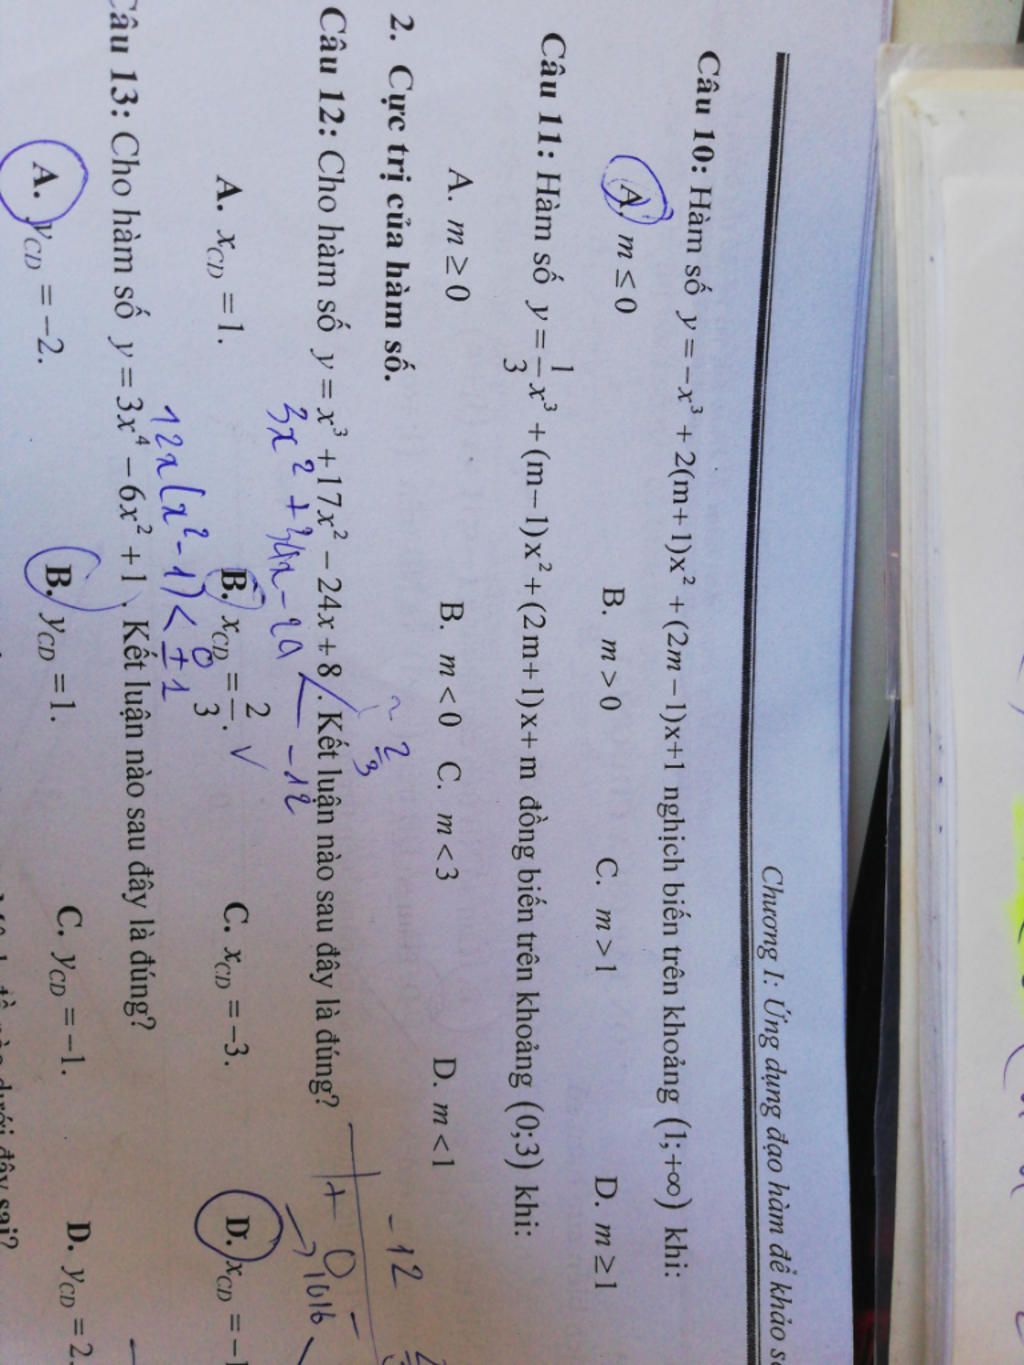 Chương I: Ứng dụng đạo hàm để khảo
Câu 10: Hàm số y = −x³ + 2(m+1)x² + (2m−1)x+1 nghịch biến trên khoảng (1;+∞) khi:
A. m ≤ 0 B. m > 0 C. m > 1 D. m ≥ 1
Câu 11: Hàm số y = 1/3 x³ + (m−1)x² + (2m+1)x + m đồng biến trên khoảng (0;3) khi:
A. m ≥ 0 B. m < 0 C. m < 3 D. m < 1
2. Cực trị của hàm số.
Câu 12: Cho hàm số y = x³ + 17x² − 24x + 8. Kết luận nào sau đây là đúng?
3x² + 34x − 24
2/3
−12
−12
+ 0 −
A. x_CD = 1. B. x_CD = 2/3. ✓ C. x_CD = −3. D. x_CD = −1
Câu 13: Cho hàm số y = 3x⁴ − 6x² + 1. Kết luận nào sau đây là đúng?
12x(x² − 1) < 0
±1
A. y_CD = −2. B. y_CD = 1. C. y_CD = −1. D. y_CD = 2.
dưới đây sai?